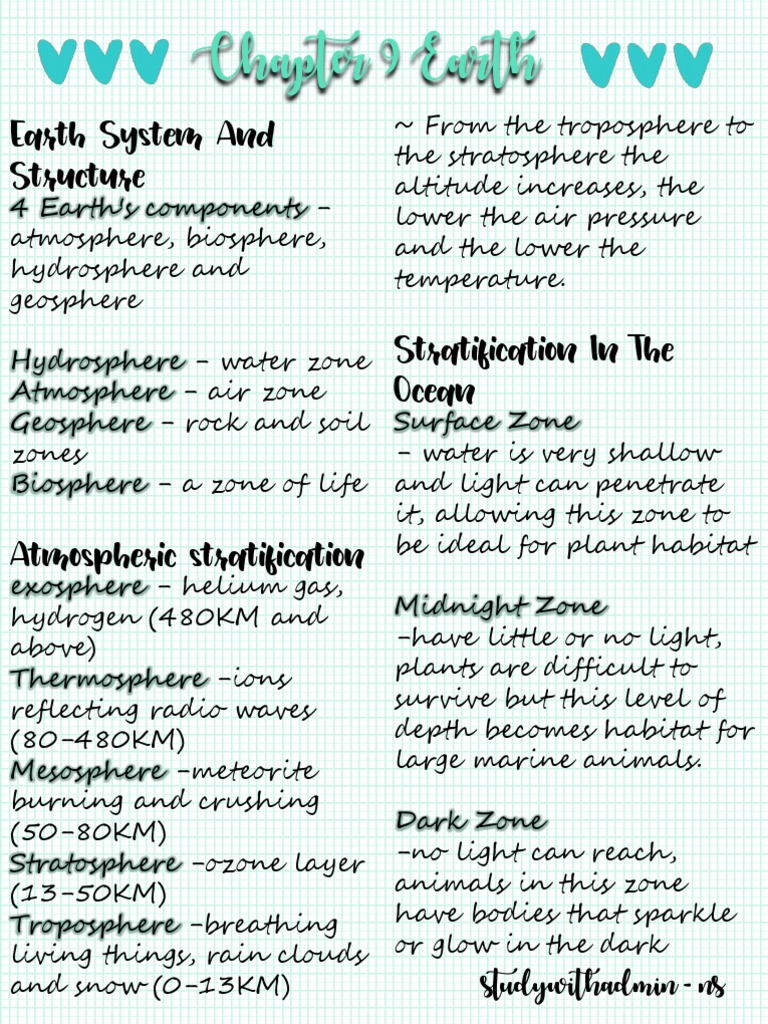 Chapter 9 Earth
Earth System And
Structure
4 Earth's components -
atmosphere, biosphere,
hydrosphere and
geosphere
Hydrosphere - water zone
Atmosphere - air zone
Geosphere - rock and soil
zones
Biosphere - a zone of life
Atmospheric stratification
exosphere - helium gas,
hydrogen (480KM and
above)
Thermosphere -ions
reflecting radio waves
(80-480KM)
Mesosphere -meteorite
burning and crushing
(50-80KM)
Stratosphere -ozone layer
(13-50KM)
Troposphere -breathing
living things, rain clouds
and snow (0-13KM)
~ From the troposphere to
the stratosphere the
altitude increases, the
lower the air pressure
and the lower the
temperature.
Stratification In The
Ocean
Surface Zone
- water is very shallow
and light can penetrate
it, allowing this zone to
be ideal for plant habitat
Midnight Zone
-have little or no light,
plants are difficult to
survive but this level of
depth becomes habitat for
large marine animals.
Dark Zone
-no light can reach,
animals in this zone
have bodies that sparkle
or glow in the dark
studywithadmin - ns